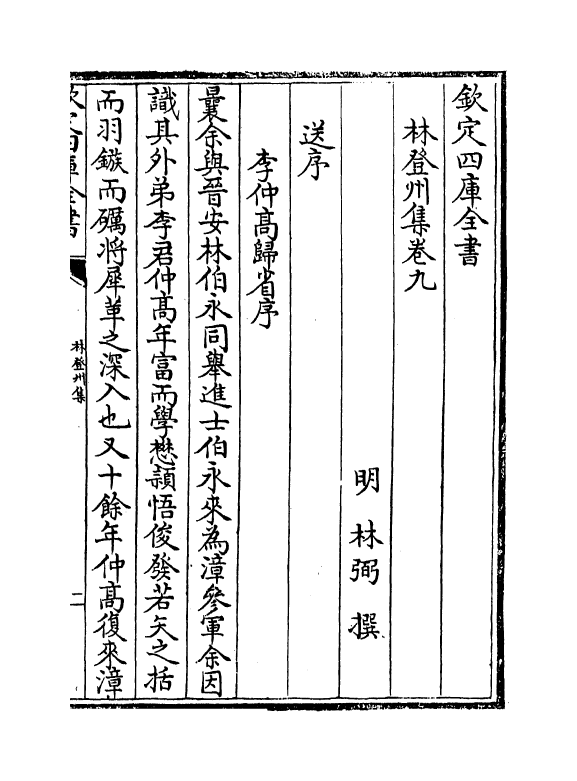 欽定四庫全書
林登州集卷九
明 林弼 撰
送序
李仲髙歸省序
曩余與晉安林伯永同舉進士伯永來為漳參軍余因
識其外弟李君仲髙年富而學懋頴悟俊發若矢之括
而羽鏃而礪將犀革之深入也又十餘年仲髙復來漳
欽定四庫全書
林登州集